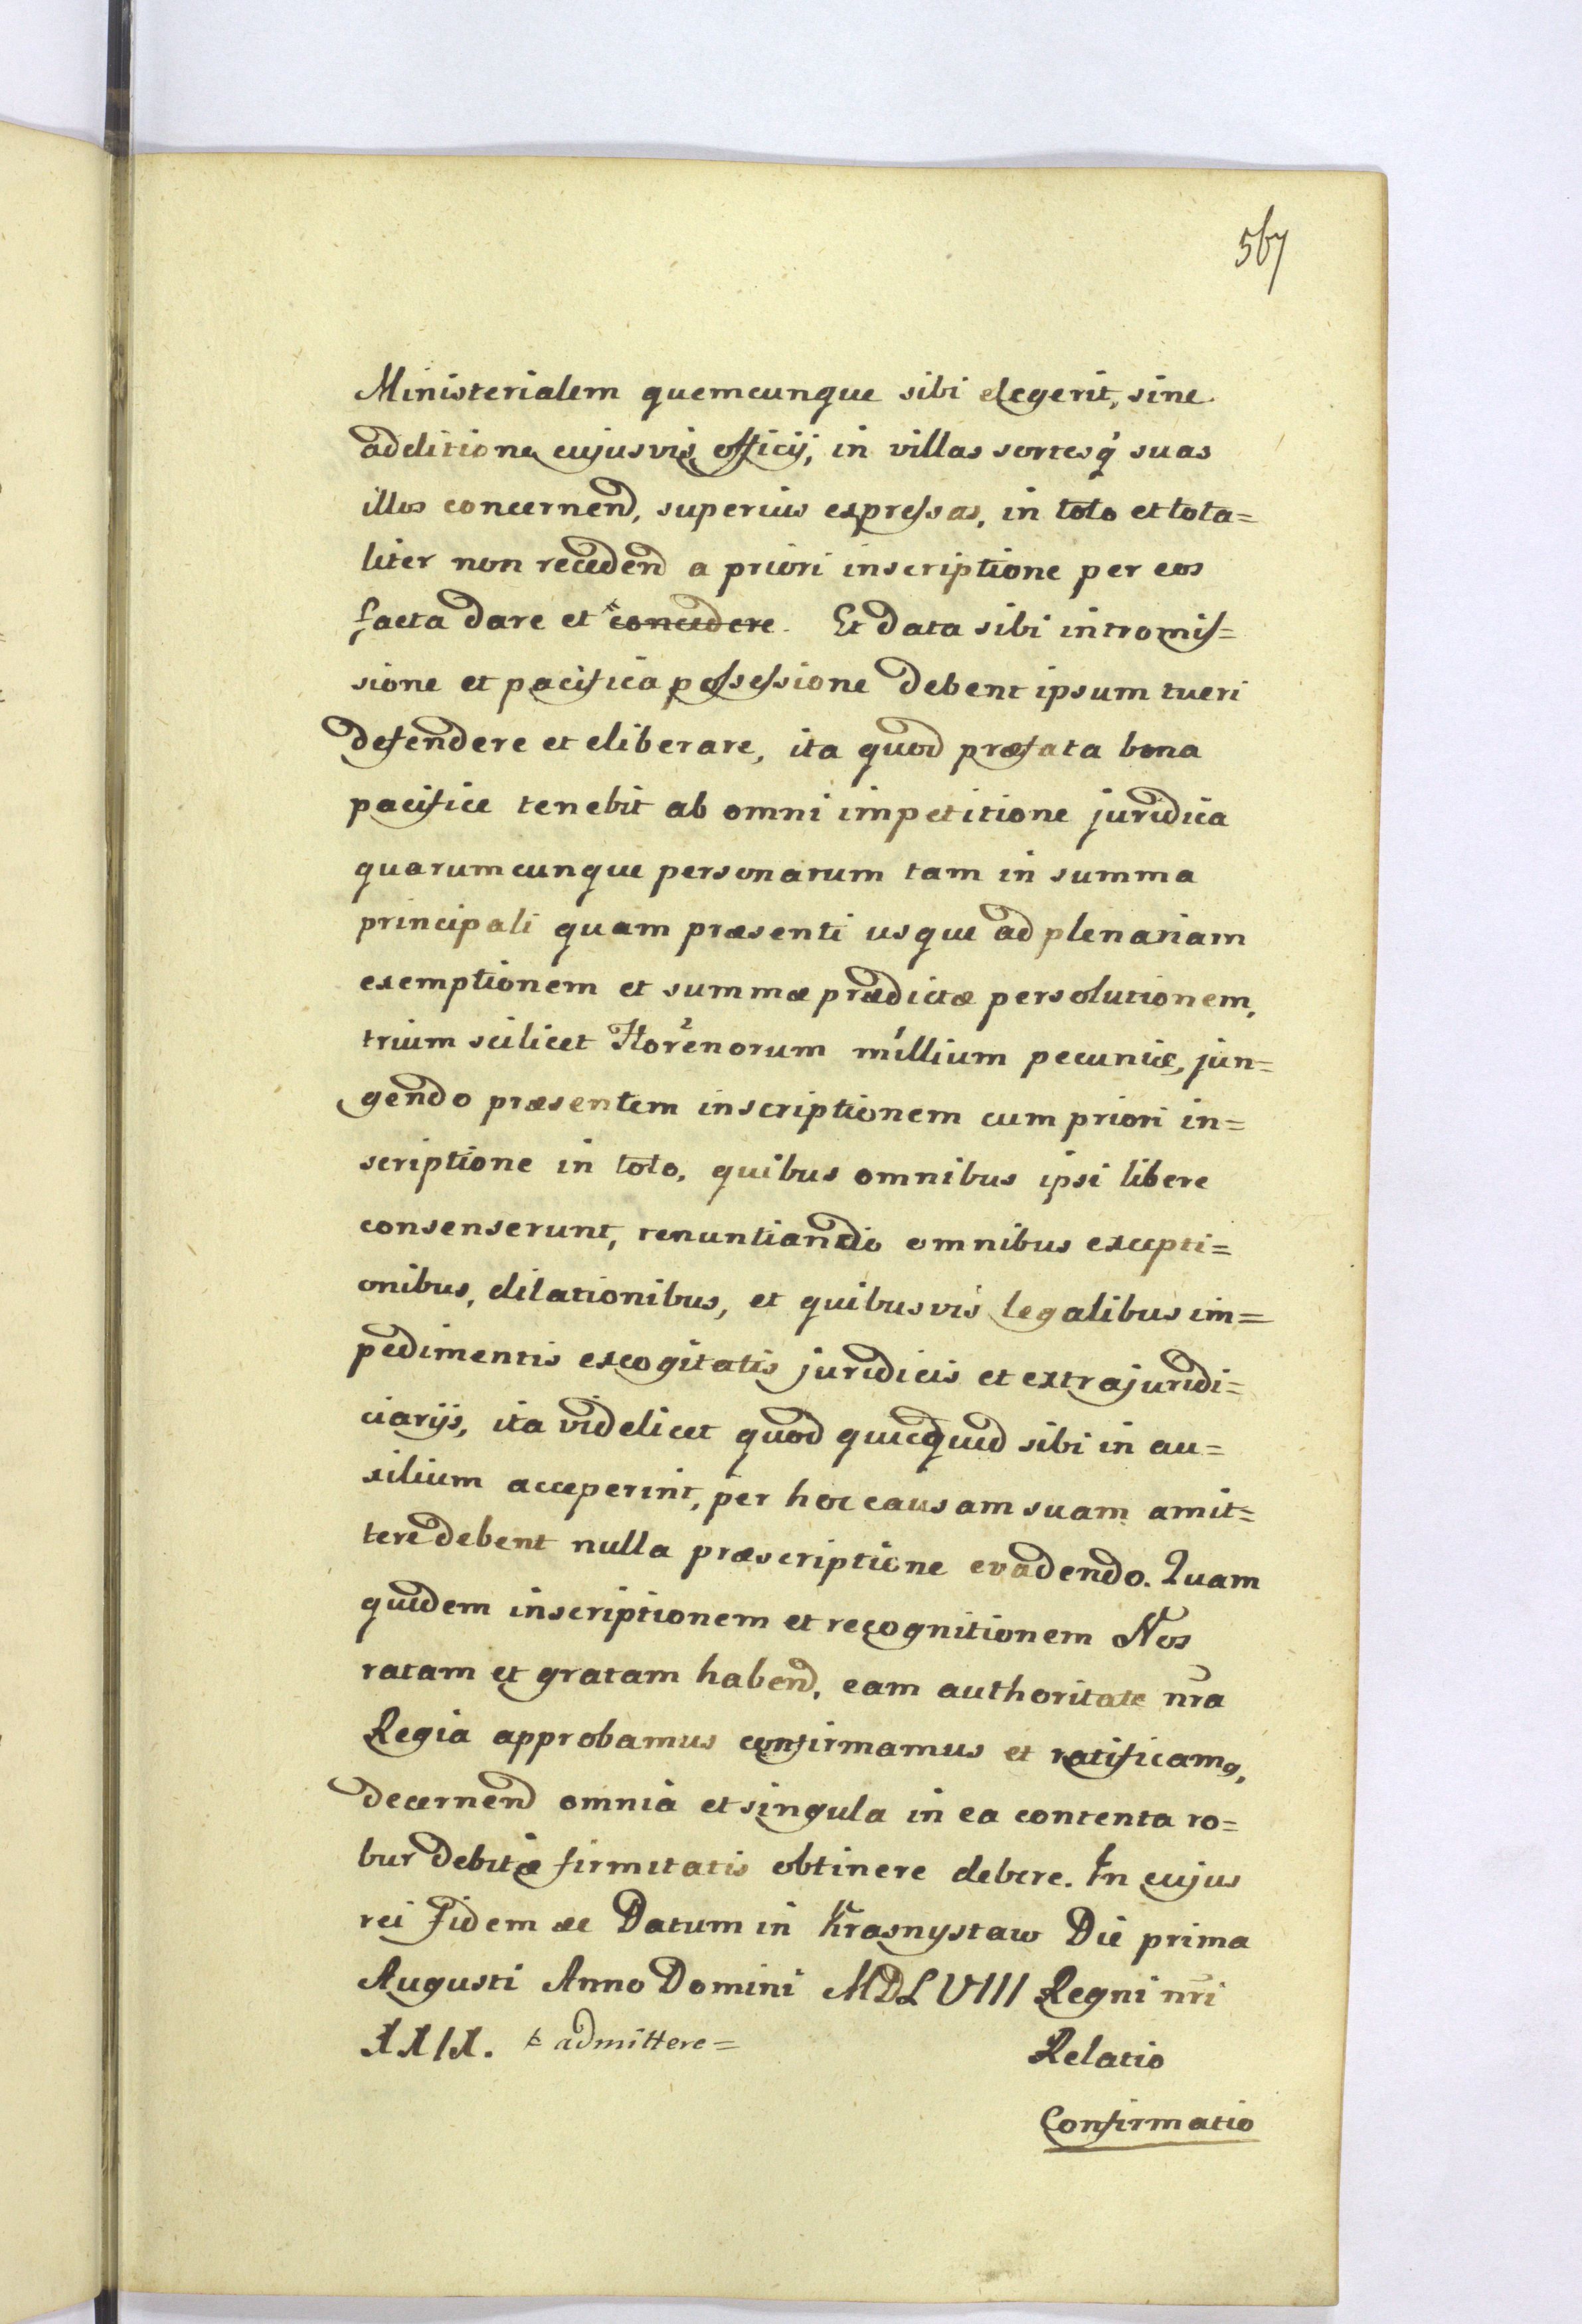 567
Ministerialem quemcunque sibi elegerit, sine
additione cujusvis officij, in villas sortesq́ suas
illos concernend, superius expressas, in toto et tota=
liter non recedend a priori inscriptione per eos
facta dare et ~~concedere~~. Et data sibi intromis=
sione et pacifica possessione debent ipsum tueri
defendere et eliberare, ita quod præfata bona
pacifice tenebit ab omni impetitione juridica
quarumcunque personarum tam in summa
principali quam præsenti usque ad plenariam
exemptionem et summæ prædictæ persolutionem,
trium scilicet Florenorum millium pecuniæ, jun=
gendo præsentem inscriptionem cum priori in=
scriptione in toto, quibus omnibus ipsi libere
consenserunt, renuntiando omnibus excepti=
onibus, dilationibus, et quibusvis legalibus im=
pedimentis excogitatis juridicis et extrajuridi=
ciarijs, ita videlicet quod quicquid sibi in au=
xilium acceperint, per hoc causam suam amit=
tere debent nulla præscriptione evadendo. Quam
quidem inscriptionem et recognitionem Nos
ratam et gratam habend, eam authoritate nra
Regia approbamus confirmamus et ratificamꝰ,
decernend omnia et singula in ea contenta ro=
bur debitæ firmitatis obtinere debere. In cujus
rei fidem &c Datum in Krasnystaw Die prima
Augusti Anno Domini MDLVIII Regni nri
XXIX. admittere=
Relatio
Confirmatio